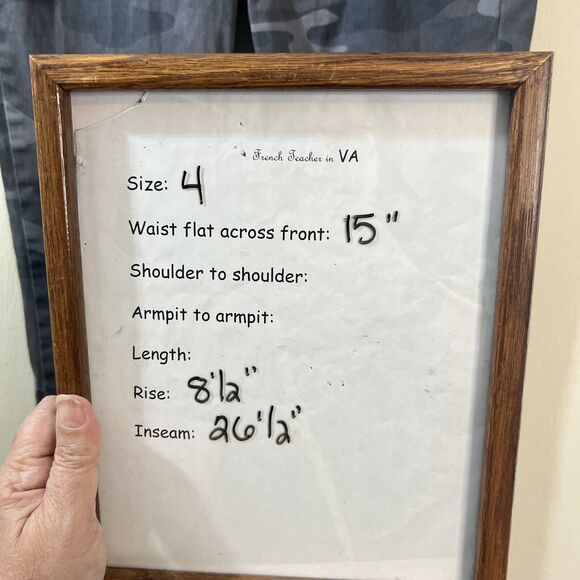 French Teacher in VA
Size: 4
Waist flat across front: 15"
Shoulder to shoulder:
Armpit to armpit:
Length:
Rise: 8 1/2"
Inseam: 26 1/2"